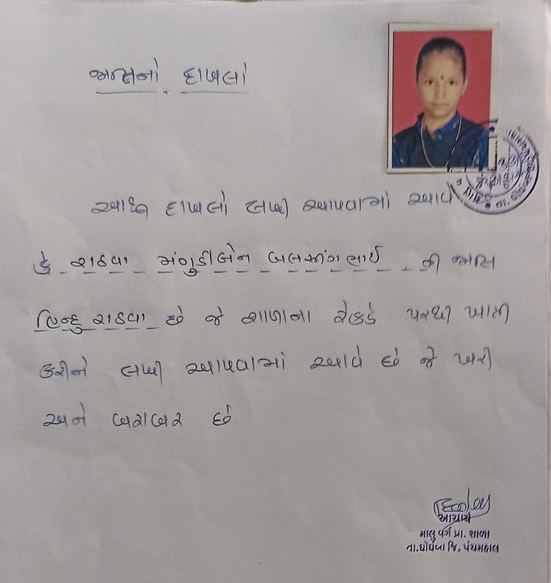 જાતિનો દાખલો
આથી દાખલો લખી આપવામાં આવે
કે રાઠવા મંગુડીબેન બલસીંગભાઈ ની જાતિ
હિન્દુ રાઠવા છે જે શાળાના રેકર્ડ પરથી ખાત્રી
કરીને લખી આપવામાં આવે છે જે ખરી
અને બરાબર છે
આચાર્ય
માલુ વર્ગ પ્રા. શાળા
તા.ઘોઘંબા જિ. પંચમહાલ